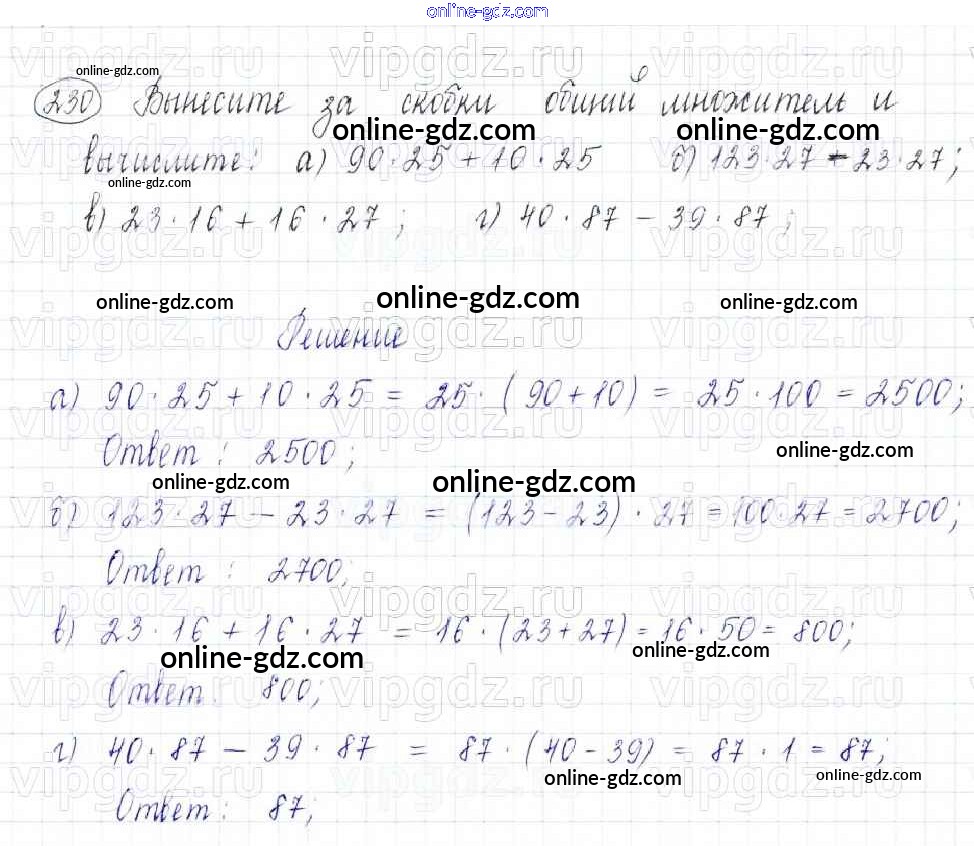 online-gdz.com
online-gdz.com
230 Вынесите за скобки общий множитель и
online-gdz.com online-gdz.com
вычислите: а) 90·25+10·25 б) 123·27-23·27;
online-gdz.com
в) 23·16+16·27; г) 40·87-39·87;
vipgdz.ru vipgdz.ru vipgdz.ru
online-gdz.com online-gdz.com online-gdz.com
Решение
а) 90·25+10·25 = 25·(90+10) = 25·100=2500;
Ответ: 2500;
online-gdz.com
online-gdz.com online-gdz.com
б) 123·27-23·27 = (123-23)·27=100·27=2700;
Ответ: 2700;
vipgdz.ru vipgdz.ru vipgdz.ru
в) 23·16+16·27 = 16·(23+27)=16·50=800;
online-gdz.com online-gdz.com
Ответ: 800;
г) 40·87-39·87 = 87·(40-39) = 87·1=87;
online-gdz.com online-gdz.com
Ответ: 87;